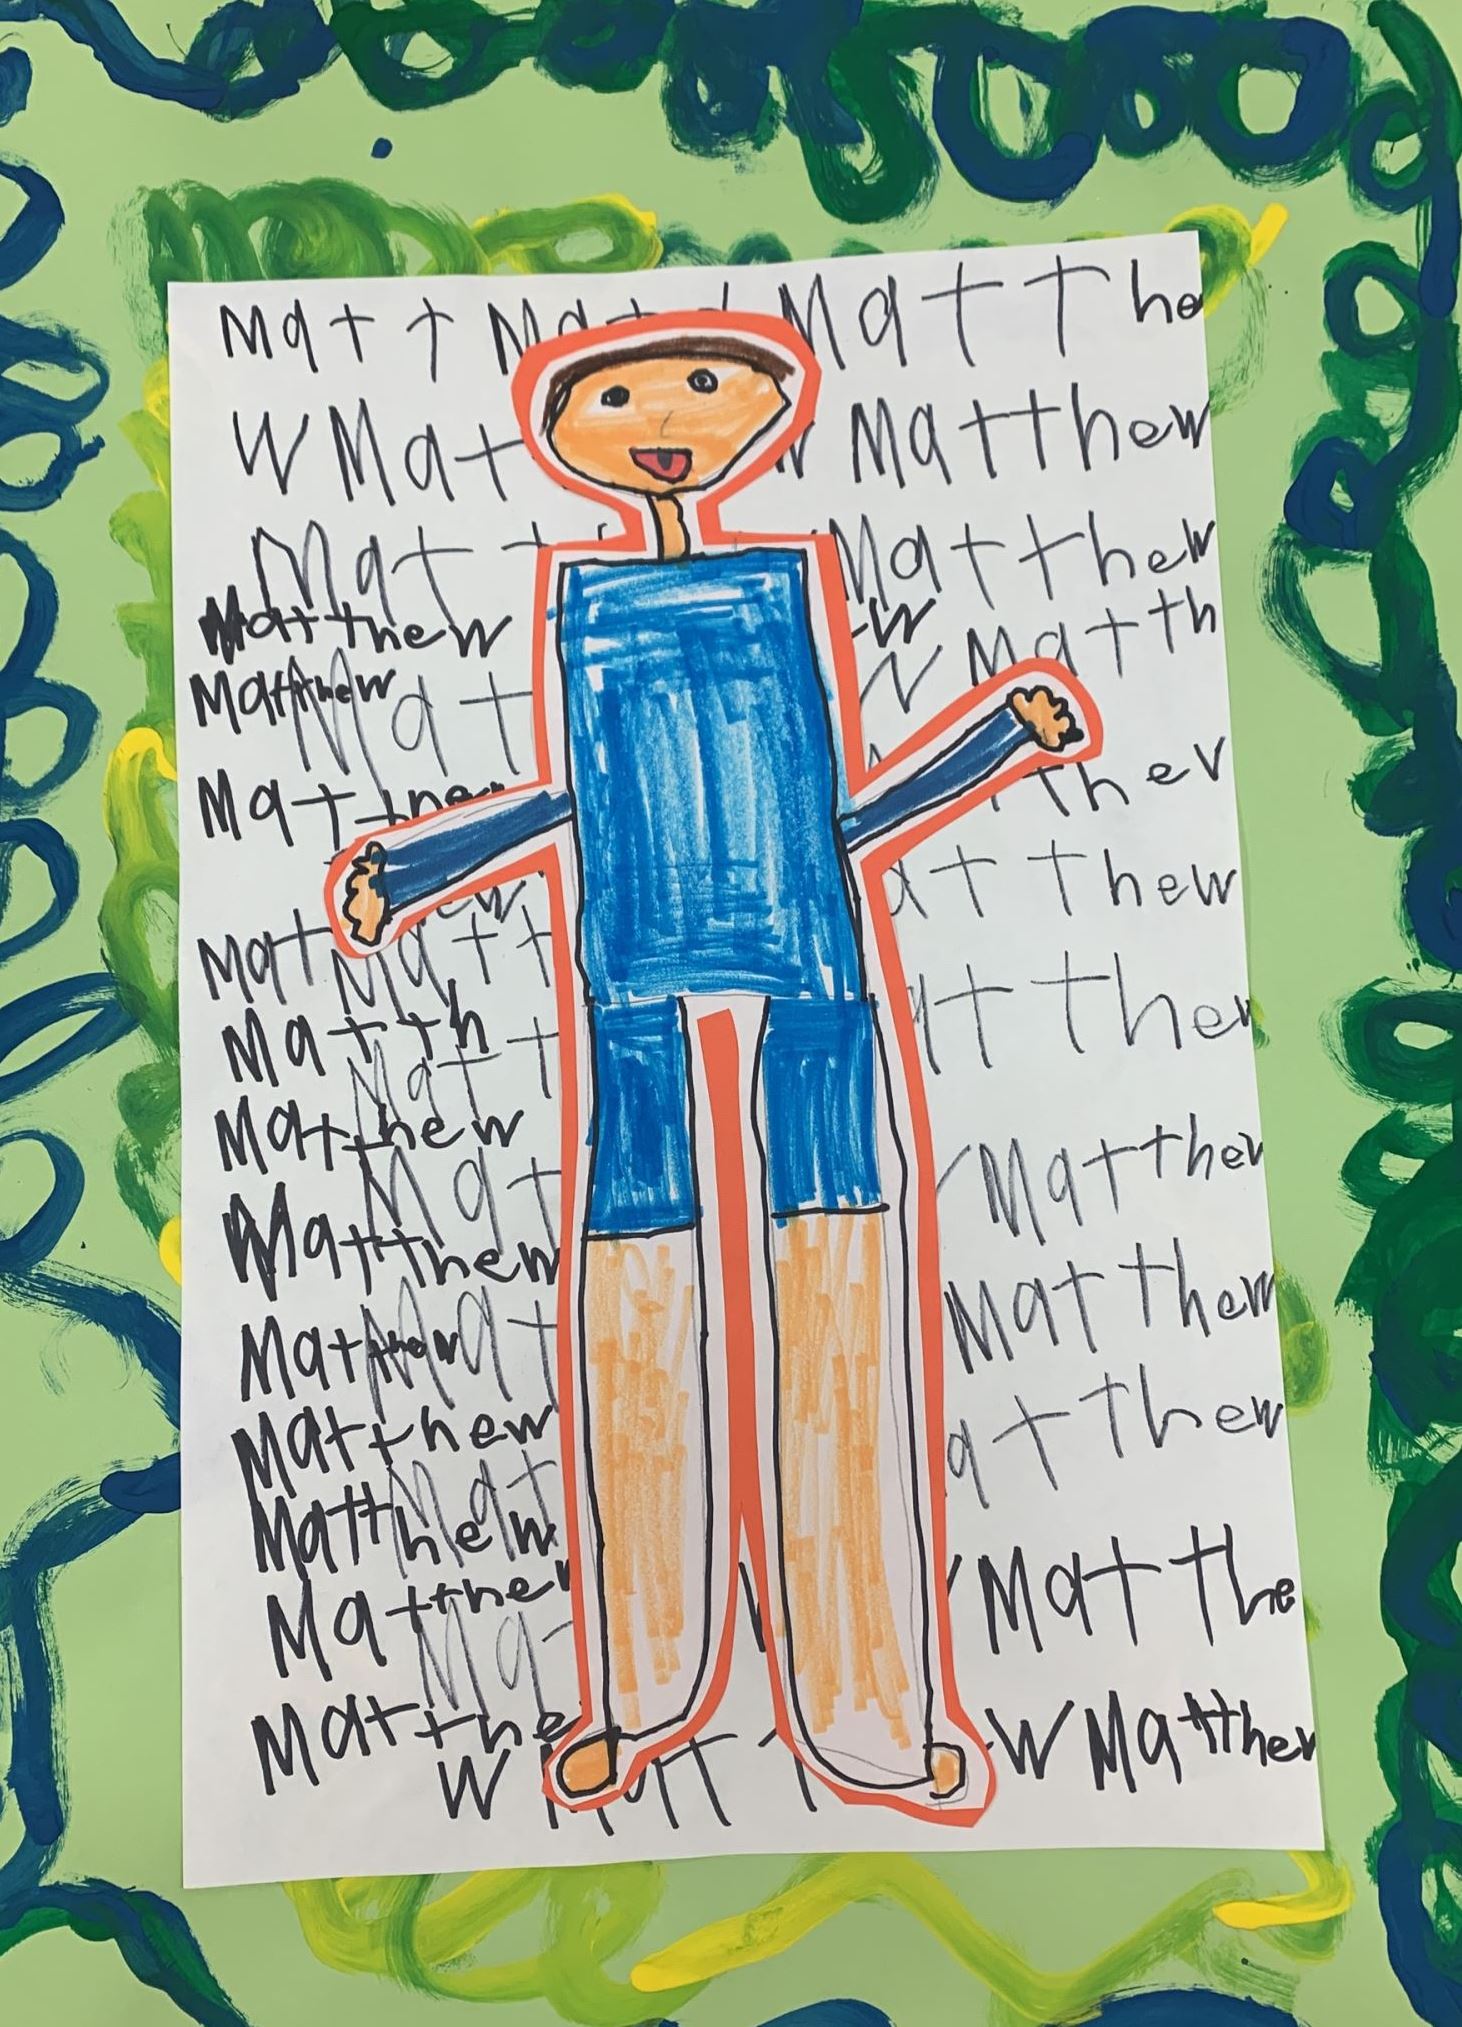 Matt Mat Matthe
W Mat Matthew
Mat Matthew
Matthew
W Matth
Matthew
Mat
Matthew
ther
atthew
Mat Matt
Matth atthew
Mat
Matthew Matthew
Mat
Matthew
Matthew Matthew
Mat
Matthew atthew
Mat
Matthew
Matthew Matthe
Ma
Matthe W Matthew
W Matt